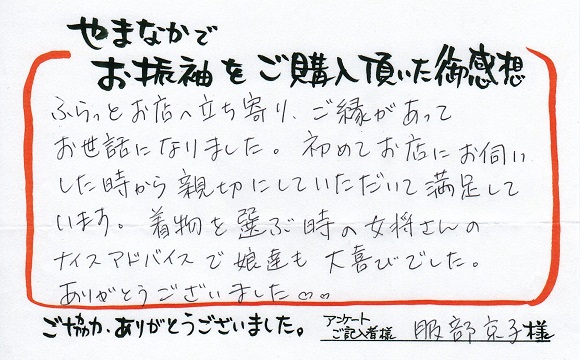 やまなかで
お振袖をご購入頂いた御感想
ふらっとお店へ立ち寄り、ご縁があって
お世話になりました。初めてお店にお伺い
した時から親切にしていただいて満足して
います。着物を選ぶ時の女将さんの
ナイスアドバイスで娘達も大喜びでした。
ありがとうございました♡♡
ご協力、ありがとうございました。 アンケートご記入者様 服部京子様